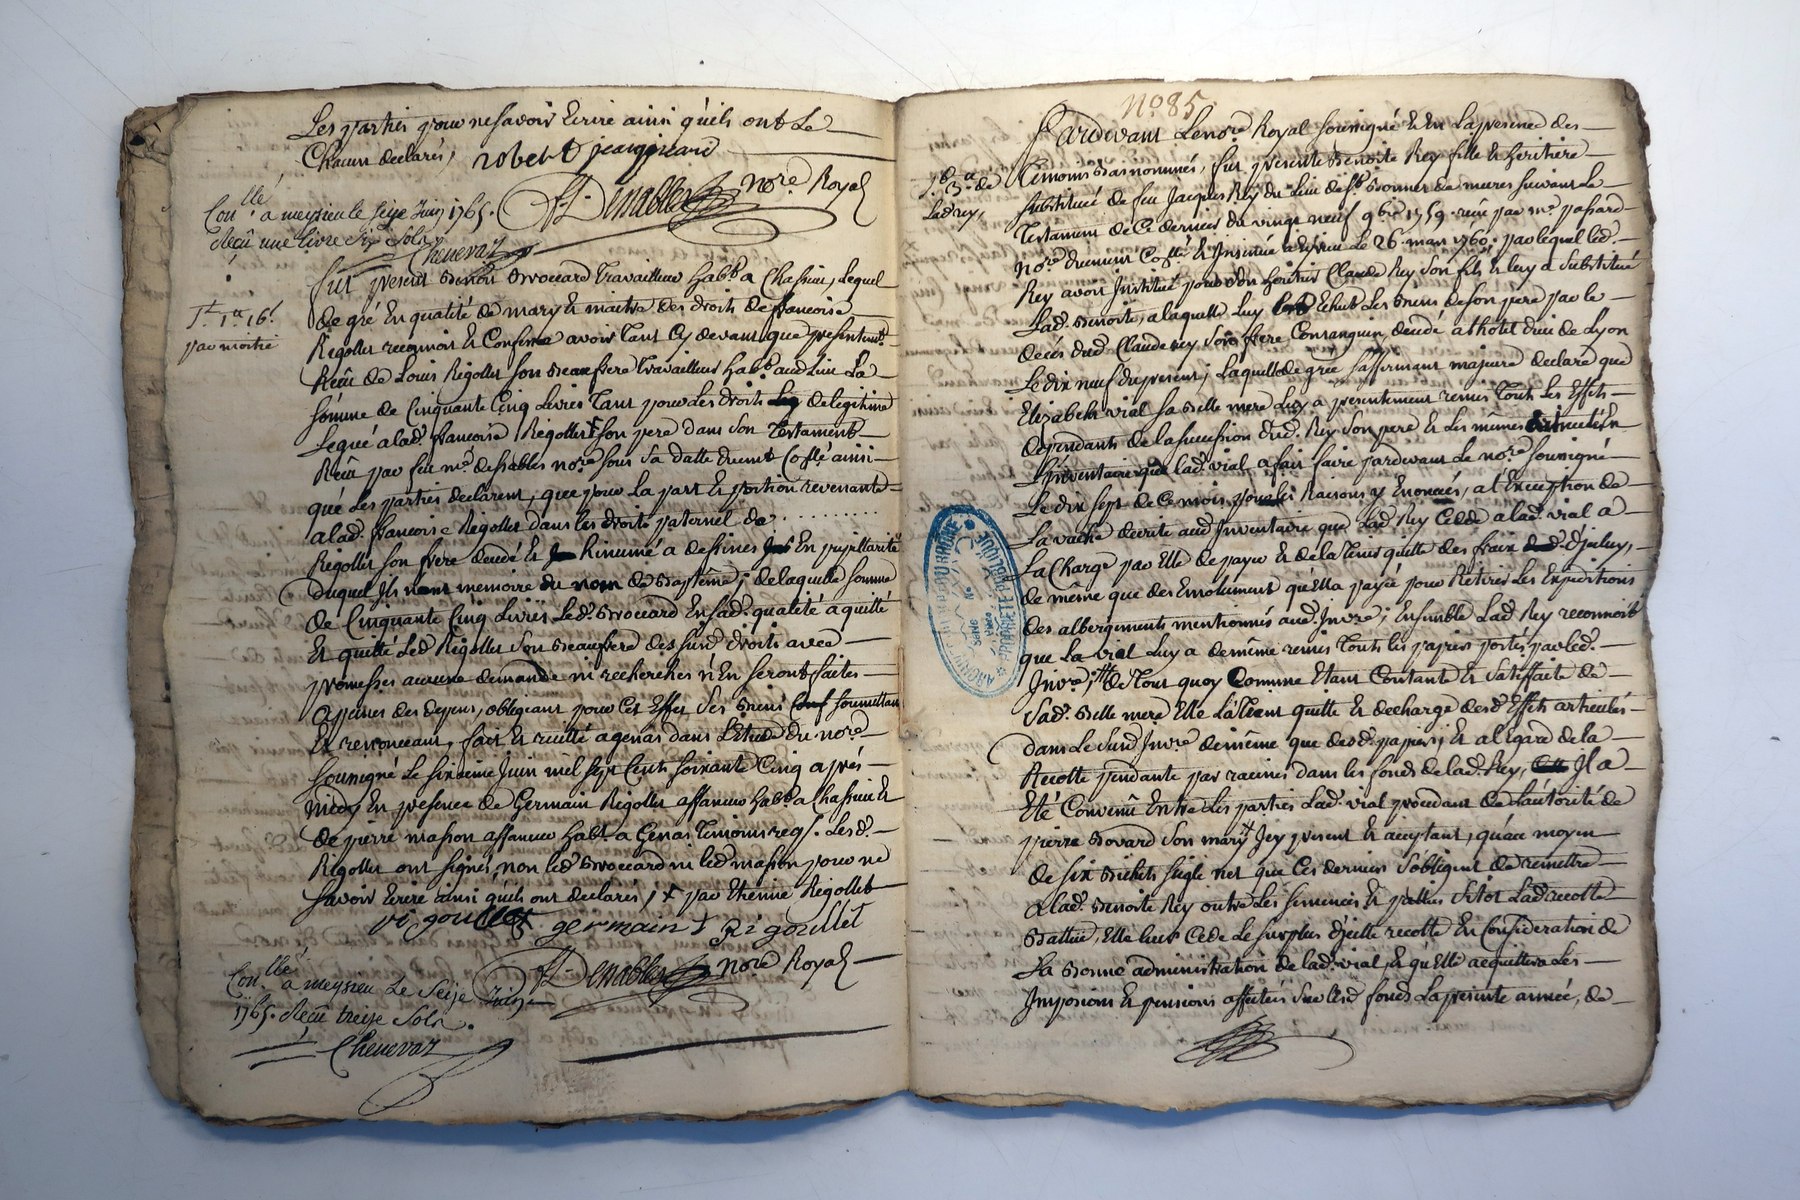 Les parties pour ne savoir Ecrire ainsi qu'ils ont Le
Chacun declarés, robert jean
f. Desnables nore Royal
Conllé a meysieu le seize Juin 1765.
Reçu une livre six sols
Chenevaz
fut present Benoit Brouard travailleur habt a Chassieu, Lequel
de gré En qualité de mary Et maitre des droits de francoise
Rigollet reconnoit Et Confesse avoir tant Cy devant que presentemt
par moitié
Reçu de Louis Rigollet son Beaufrere travailleur habt aud. Lieu La
somme de Cinquante Cinq Livres tant pour Les droits de legitime
Legué a lade francoise Rigollet + son pere dans son Testament
Reçu par feu me desnables nore sous sa datte duemt Collé ainsi
que Les parties declarent, que pour La part Et portion revenante
a lad. francoise Rigollet dans les droits paternel de ..........
Rigollet son frere decedé Et Rinumé a dessines En pupillarité
duquel Ils nont memoire du nom de Baptême ; de laquelle somme
de Cinquante Cinq Livres Led. Brouard En sad. qualité a quitté
Et quitte Led Rigollet son Beaufrere des susd droits avec
promesses aucune demande ni recherches n'En seront faites
a peines des depens, obligeant pour Cet Effet ses Biens soumettant
Et renonceant, fait Et recitté a genas dans L'Etude du nore
soussigné Le sixieme Juin mil sept Cents soixante Cinq aprés
midy En presence de Germain Rigollet affaneur habt a Chassieu Et
de pierre masson affaneur habt a Genas temoins reqs. Lesd.
Rigollet ont signés, non led Brouard ni led masson pour ne
savoir Ecrire ainsi qu'ils ont declarés, + par Etienne Rigollet
rigoullet germain Rigoullet
f. Desnables nore Royal
Conllé a meysieu Le Seize Juin
1765. Reçu treize Sols.
Chenevaz
No 85
Pardevant Le nore Royal soussigné Et En La presence des
temoins Bas nommés, fut presente Benoite Rey fille Et heritiere
substituée de feu Jacques Rey du Lieu de St Bonnet de mures suivant Le
Testament de Ce dernier du vingt neuf 9bre 1759. reçu par me passard
nore duement Collé Et Insinué a le 26. mars 1760; par lequel led.
Rey avoit Institué pour son heritier Claude Rey son fils Et luy a substitué
Lad. Benoite, a laquelle Luy Echut Les Biens de son pere par le
decés dud. Claude rey son frere Consanguin, decedé a l'hotel dieu de Lyon
Le dix neuf du present; Laquelle de gré s'affirmant majeure declare que
Elizabeth vial sa Belle mere Luy a presentement remis touts Les Effets
dependants de la succession dud. Rey son pere Et Les mêmes
L'Inventaire que lad. vial a fait faire pardevant Le nore soussigné
Le dix sept de Ce mois pour les Raisons y Enoncées, a l'Exception de
La vache decrite aud Inventaire que Lad. Rey Cede a lad. vial a
La Charge par Elle de payer Et de la tenir quitte des fraix d'Jceluy,
de même que des Emolument qu'Ella payés pour Retirer Les Expeditions
des albergements mentionnés aud. Invre; Ensemble Lad. Rey reconnoit
que La vial Luy a de même remis touts les papiers portés par led.
Invre; de tout quoy Comme Etant Contante Et Satisfaite de
sad. Belle mere Elle La tient quitte Et decharge desd. Effets articulés
dans Le Susd Invre de même que desd. papiers; Et al Egard de la
Recolte pendante par racines dans les fonds de lad. Rey, Jl a
Eté Convenû Entre Les parties Lad. vial procedant de L'autorité de
pierre Bovard son mary + Jcy present Et acceptant, qu'au moyen
de six Bichets seigle net que Ces derniers s'obligent de remettre
a lad. Benoite Rey outre Les semences Et pailles sitot Lad. recolte
Battue, Elle leur Cede Le surplus d'jcelle recolte En Consideration de
La Bonne administration de lad. vial, Et qu'Elle acquittera Les
Impositions Et pensions affectées sur Lesd. fonds La presente année, de